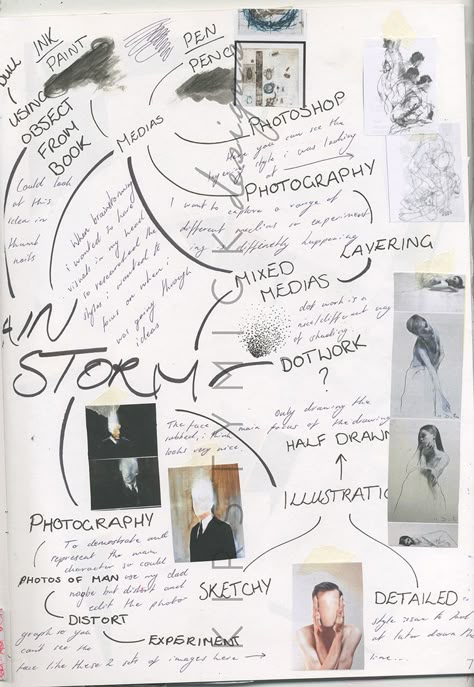 INK
PAINT
PEN
PENCIL
USING
OBJECT
FROM
BOOK
MEDIAS
PHOTOSHOP
Here you can see the
style i was looking
at
PHOTOGRAPHY
Could look
at this
idea in
thumb
nails
When brainstorming
i wanted to have
visuals in my head
so researched the
styles i wanted to
focus on when i
was going through
ideas
I want to explore a range of
different medias so experiment
ing differently happening
LAYERING
MIXED
MEDIAS
dot work is a
nice/different way
of shading
DOTWORK
?
AIN
STORM
The face
rubbed, i think
looks very nice.
only drawing the
main focus of the drawing
HALF DRAWN
ILLUSTRATIO
PHOTOGRAPHY
To demonstrate and
represent the main
character so could
PHOTOS OF MAN use my dad
maybe but distort and
edit the photo
DISTORT
graph so you
can't see the
EXPERIMENT
face like these 2 sets of images here
SKETCHY
DETAILED
style issue to look
at later down the
line...
KIRSTY MICK design